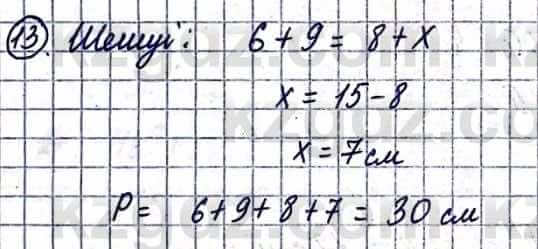 13. Шешуі: 6 + 9 = 8 + x
x = 15 - 8
x = 7 см
P = 6 + 9 + 8 + 7 = 30 см